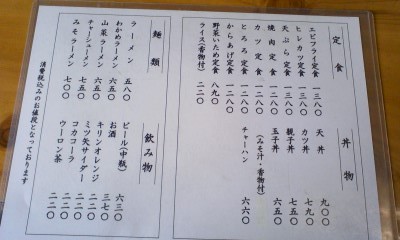 定食
エビフライ定食 一三八〇
ヒレカツ定食 一三八〇
天ぷら定食 一二八〇
焼肉定食 一二八〇
カツ定食 一二八〇
とろろ定食 一二八〇
からあげ定食 一二八〇
野菜いため定食 八九〇
ライス(香物付) 二二〇
丼物
天丼 九〇〇
カツ丼 七九〇
親子丼 七五〇
玉子丼 六五〇
(みそ汁・香物付)
チャーハン 六六〇
麺類
ラーメン 五八〇
わかめラーメン 六五〇
山菜ラーメン 六五〇
チャーシューメン 七五〇
みそラーメン 七〇〇
飲み物
ビール(中瓶) 六三〇
お酒 三七〇
キリンオレンジ 二二〇
ミツ矢サイダー 二二〇
コカコーラ 二二〇
ウーロン茶 二二〇
消費税込みのお値段となっております